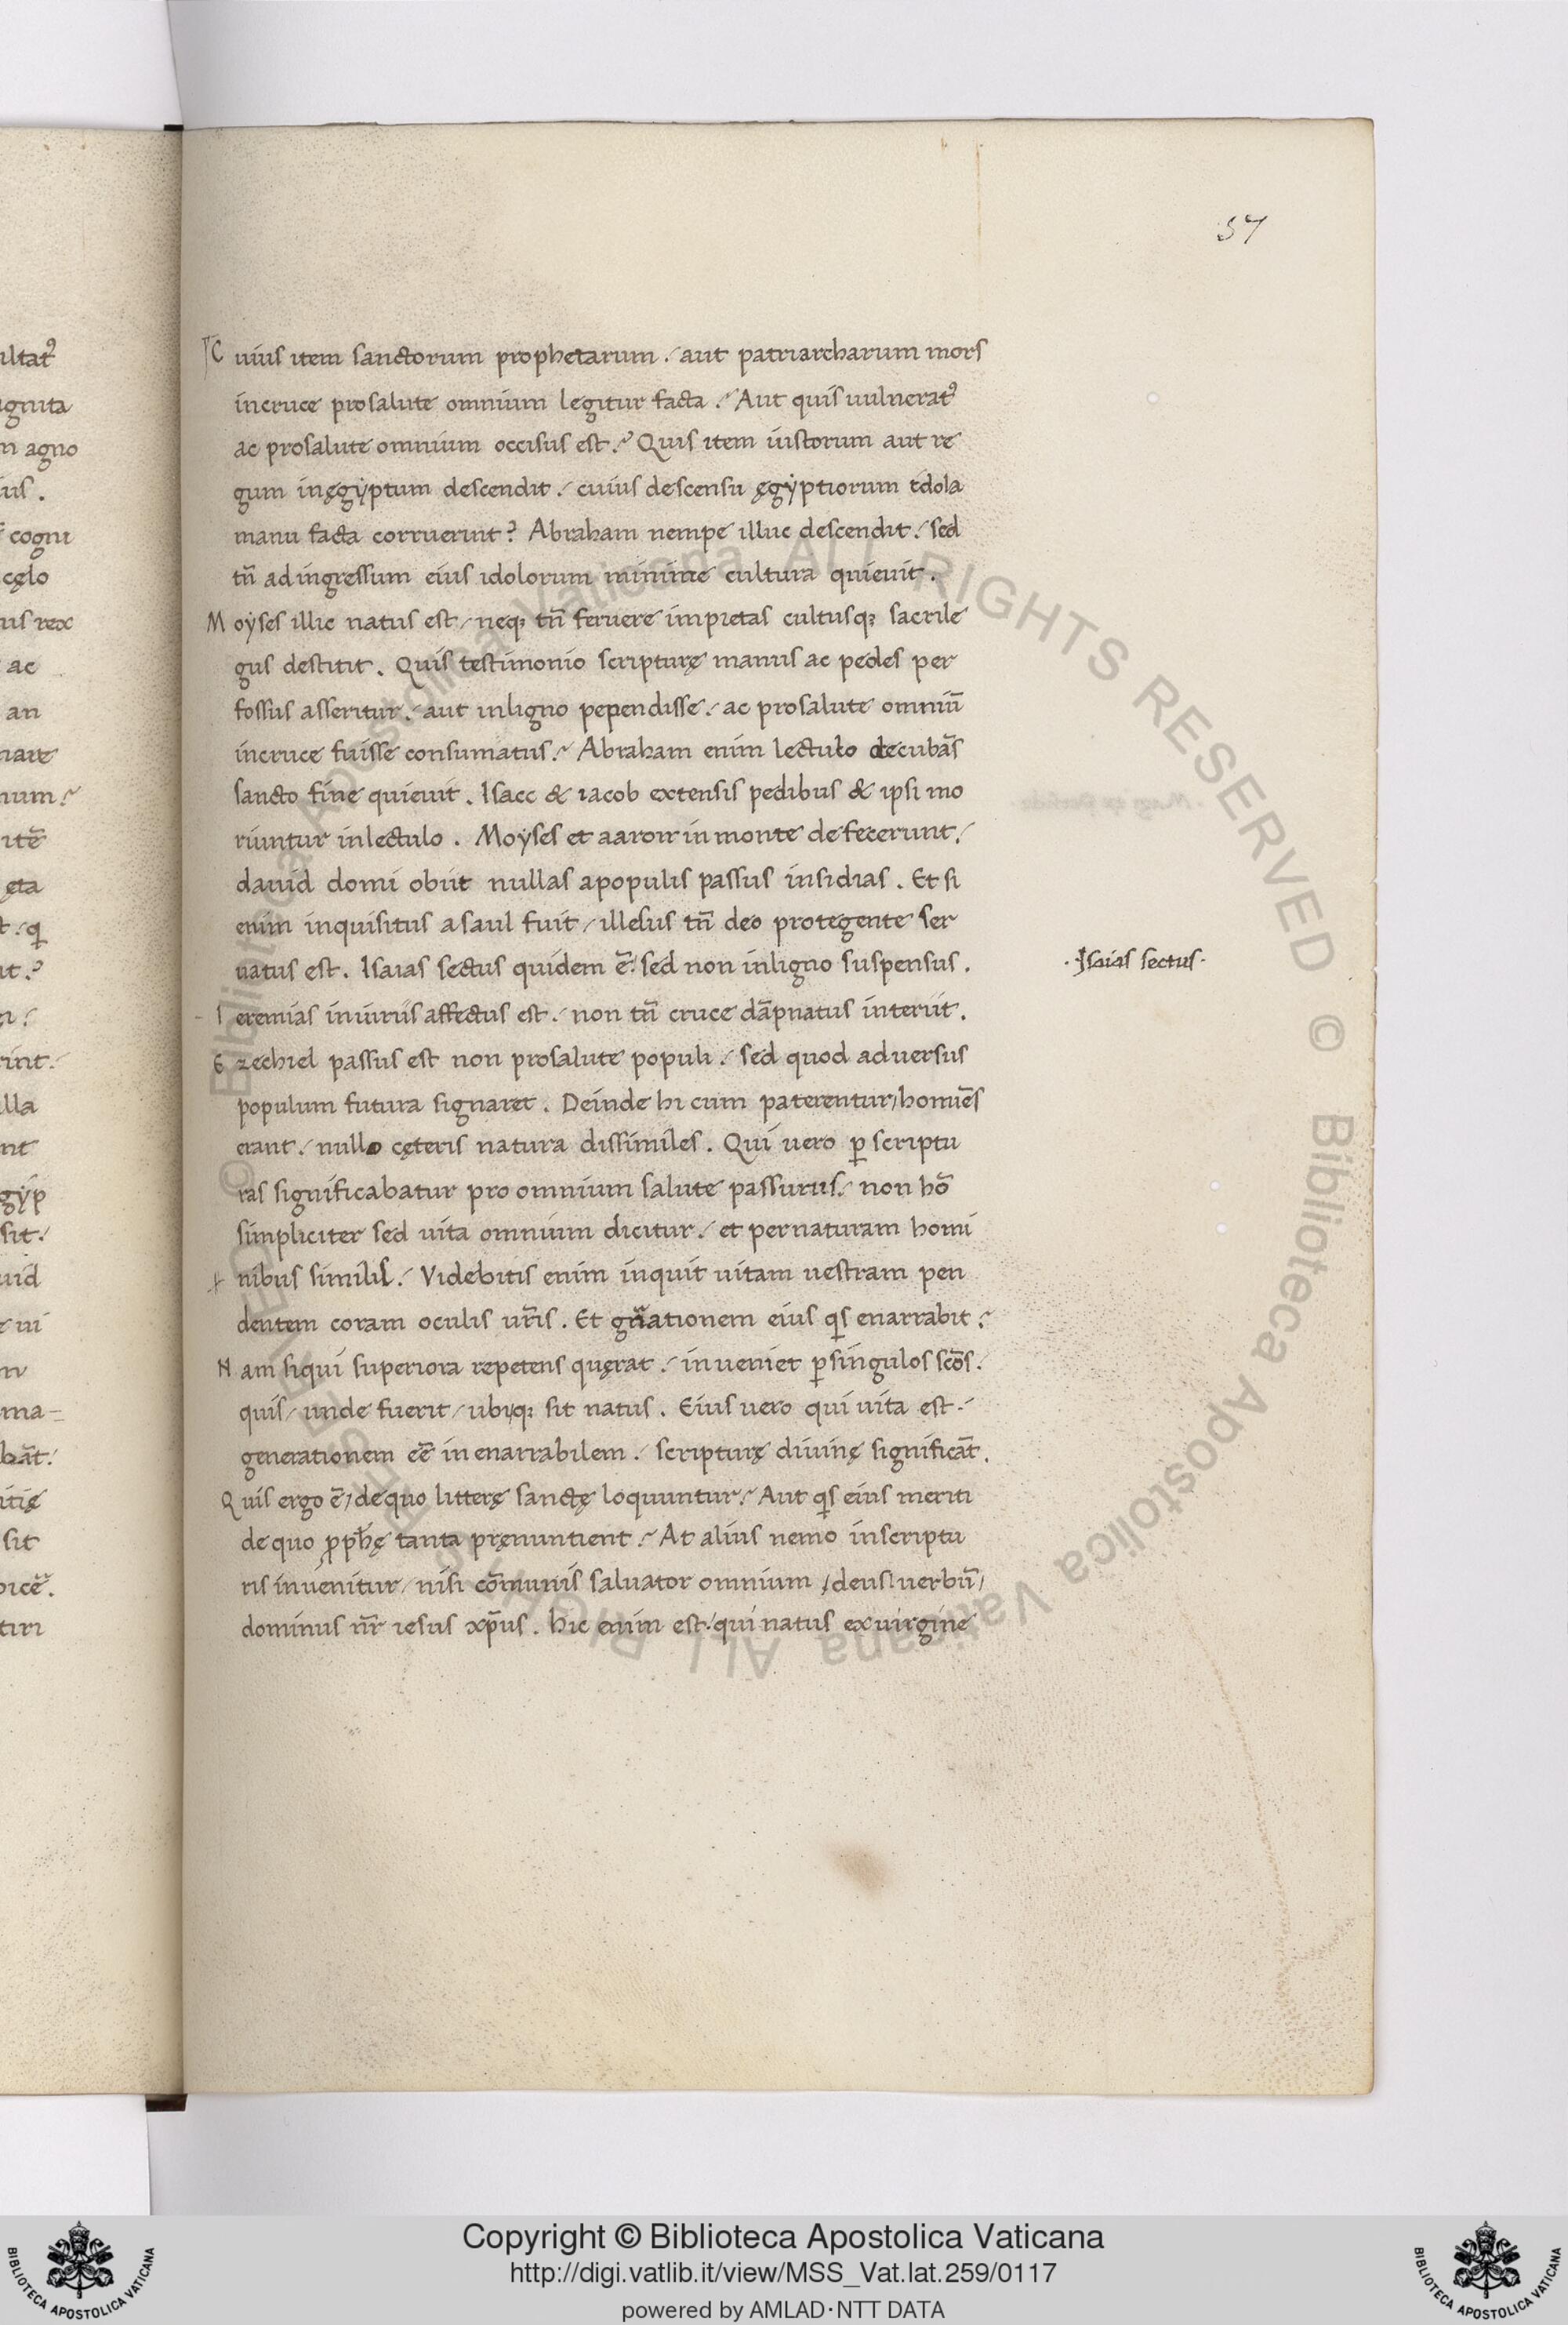 57
Cuius item sanctorum prophetarum. aut patriarcharum mors
incruce prosalute omnium legitur facta? Aut quis uulnerat᾽
ac prosalute omnium occisus est? Quis item iustorum aut re
gum inęgÿptum descendit. cuius descensu ęgÿptiorum idola
manu facta corruerint? Abraham nempe illuc descendit. sed
tñ adingressum eius idolorum minime cultura quieuit.
Moÿses illic natus est, neq; tñ feruere impietas cultusq; sacrile
gus destitit. Quis testimonio scripturę manus ac pedes per
fossus asseritur. aut inligno pependisse. ac prosalute omniū
incruce fuisse consumatus? Abraham enim lectulo decubās
sancto fine quieuit. Isacc & iacob extensis pedibus & ipsi mo
riuntur inlectulo. Moÿses et aaron in monte defecerunt.
dauid domi obiit nullas apopulis passus insidias. Et si
enim inquisitus asaul fuit, illesus tñ deo protegente ser
uatus est. Isaias sectus quidem ē. sed non inligno suspensus.
·Isaias sectus·
Ieremias iniuriis affectus est. non tñ cruce dāpnatus interiit.
Ezechiel passus est non prosalute populi. sed quod aduersus
populum futura signaret. Deinde hi cum paterentur, homiēs
erant. nullo cęteris natura dissimiles. Qui uero ꝑ scriptu
ras significabatur pro omnium salute passurus. non hō
simpliciter sed uita omnium dicitur. et pernaturam homi
nibus similis. Videbitis enim inquit uitam uestram pen
dentem coram oculis ur̄is. Et gn̄ationem eius qis enarrabit?
Nam siqui superiora repetens quęrat. inueniet ꝑsingulos scōs.
quis, unde fuerit, ubiq; sit natus. Eius uero qui uita est.
generationem eē inenarrabilem. scripturę diuinę significāt.
Quis ergo ē, dequo litterę sanctę loquuntur? Aut qis eius meriti
de quo ꝓph̄ę tanta pręnuntient? At alius nemo inscriptu
ris inuenitur, nisi cōmunis saluator omnium, deus uerbū,
dominus nr̄ iesus xp̄us. hic enim est. qui natus exuirgine
ultat᾽
agno
ius.
cogni
cęlo
us rex
ac
an
ma
sit
Copyright © Biblioteca Apostolica Vaticana
http://digi.vatlib.it/view/MSS_Vat.lat.259/0117
powered by AMLAD·NTT DATA
BIBLIOTECA APOSTOLICA VATICANA
BIBLIOTECA APOSTOLICA VATICANA